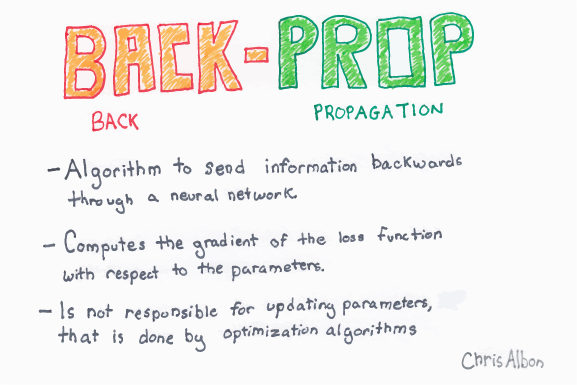 BACK-PROP
BACK PROPAGATION
- Algorithm to send information backwards
through a neural network.
- Computes the gradient of the loss function
with respect to the parameters.
- Is not responsible for updating parameters,
that is done by optimization algorithms
Chris Albon